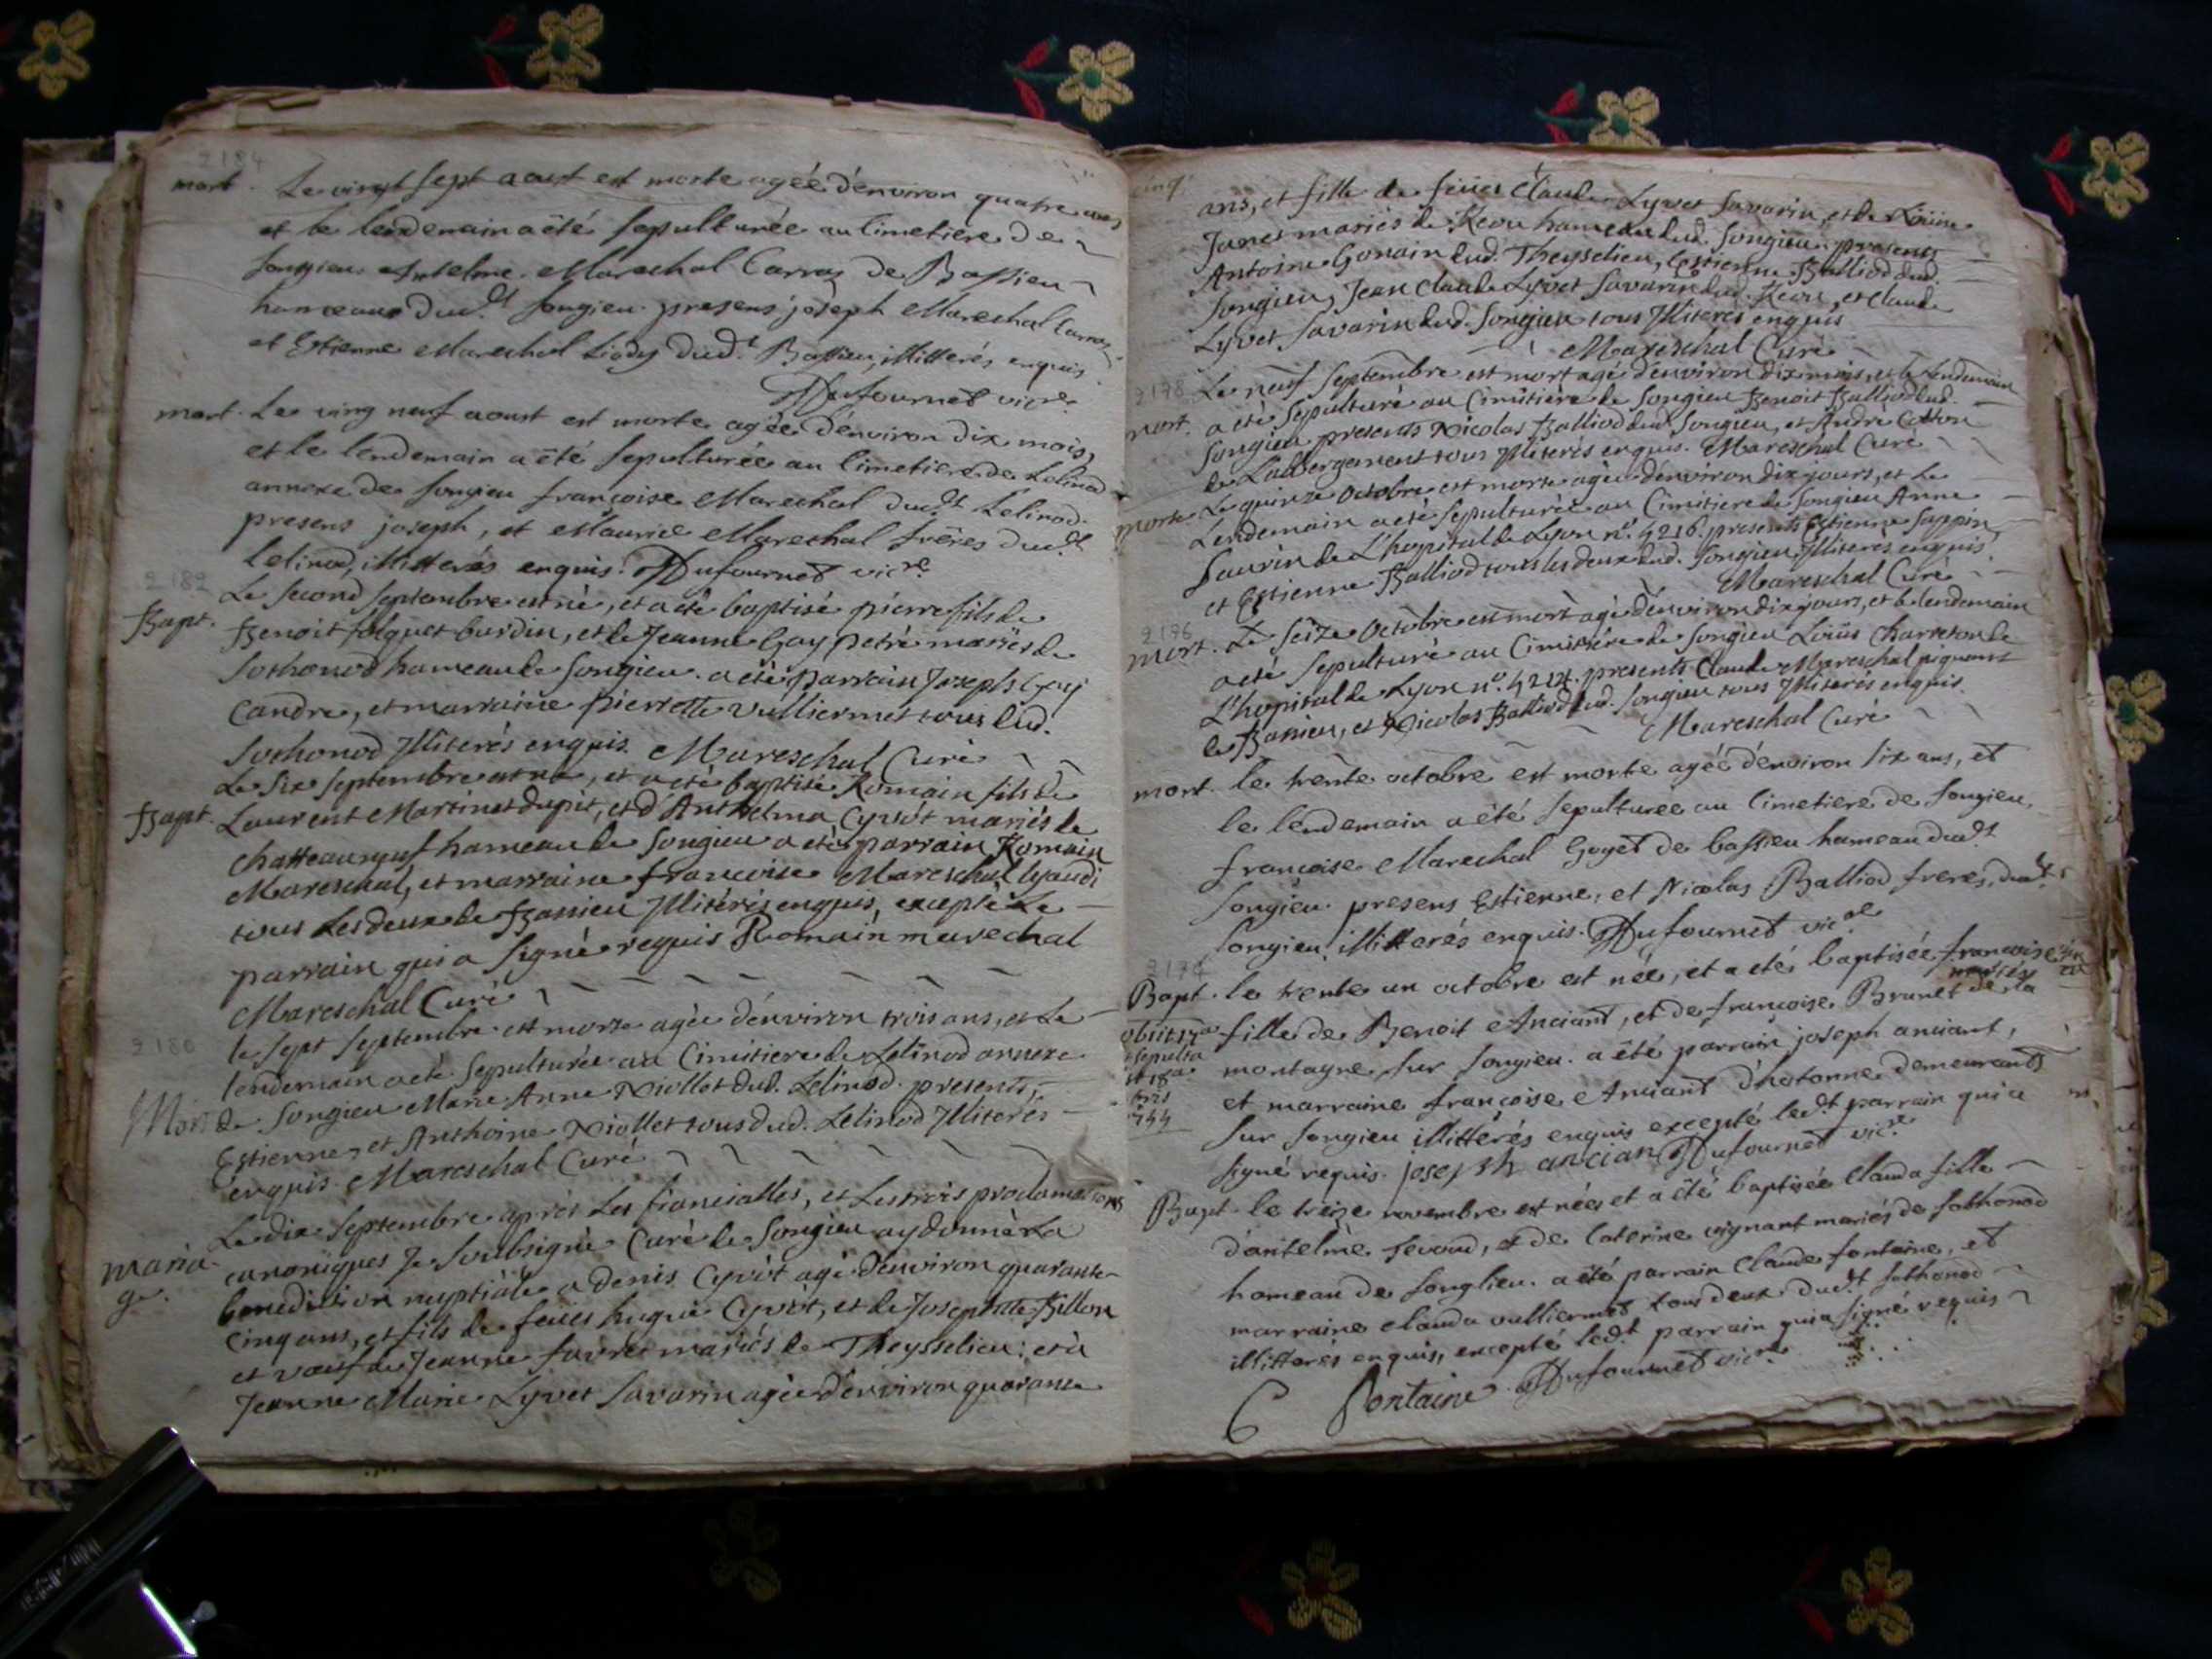 2184
mort. Le vingt sept aoust est morte agée d'environ quatre ans,
et le lendemain a été sepulturée au Cimetiere de
Songieu Antelme Marechal Carraz de Bassieu
hameau dud.t Songieu. presens joseph Marechal Carraz
et Estienne Marechal dud.t Bassieu, illitterés enquis.
Dufournet vic.re
mort. Le ving neuf aoust est morte agée d'environ dix mois,
et le lendemain a été sepulturée au Cimetiere de Lelinod
annexe de Songieu françoise Marechal dud.t Lelinod.
presens joseph, et Maurice Marechal frères dud.t
Lelinod, illitterés enquis. Dufournet vic.re
2182
Bapt. Le second Septembre est né, et a eté baptisé pierre fils de
Benoit folquet burdin, et de Jeanne Gay petré mariés de
Sothonod hameau de Songieu. a eté parrain Joseph Gay
Candre, et marraine pierrette Vulliermet tous dud.
Sothonod Illiterés enquis. Mareschal Curé
Bapt. Le Six Septembre est né, et a eté baptisé Romain fils de
Laurent Martinet dupit, et d'Anthelma Cyvót mariés de
Chatteauneuf hameau de Songieu a eté parrain Romain
Mareschal, et marraine françoise Mareschal
tous Les deux de Bassieu Illiterés enquis, excepté Le
parrain qui a signé requis Romain marechal
Mareschal Curé
2180
Mort le sept Septembre est morte agée d'environ trois ans, et Le
lendemain a eté sepulturée au Cimitiere de Lelinod annexe
de Songieu Marie Anne Niollet dud. Lelinod. presents,
Estienne, et Anthoine Niollet tous dud. Lelinod Illiterés
enquis. Mareschal Curé
maria
ge. Le dix Septembre après Les fiancialles, et Les trois proclamations
canoniques Je Soubsigné Curé de Songieu ay donné La
benediction nuptiale a Denis Cyvót agé d'environ quarante
cinq ans, et fils de feües hugue Cyvót, et de Josephte Billon
et veuf de Jeanne favre mariés de Theysselieu; et à
Jeanne Marie Lyvet Savarin agée d'environ quarante
cinq
ans, et fille de feües Claude Lyvet Savarin, et de
Janet mariés de Reou hameau dud. Songieu. presents
Antoine Gonain dud. Theysselieu, Estienne Balliod dud.
Songieu, Jean Claude Lyvet Savarin dud. Reou, et Claude
Lyvet Savarin dud. Songieu tous Illiterés enquis
Mareschal Curé
2178
mort. Le neuf Septembre est mort agé d'environ dix mois, et le lendemain
a eté sepulturé au Cimitière de Songieu Benoit Balliod dud.
Songieu presents Nicolas Balliod dud. Songieu, et André Cotton
de L'abbergement tous Illiterés enquis. Mareschal Curé
morte Le quinze Octobre est morte agée d'environ dix jours, et Le
Lendemain a eté sepulturée au Cimitiere de Songieu Anne
Laurin de L'hopital de Lyon n.o 4216. presents Estienne Sappin
et Estienne Balliod tous les deux dud. Songieu Illiterés enquis.
Mareschal Curé
2176
mort. Le Seize Octobre est mort agé d'environ dix jours, et le lendemain
a eté sepulturé au Cimitière de Songieu Loüis Charreton de
L'hopital de Lyon n.o presents Claude Mareschal piquant
de Bassieu, et Nicolas Balliod dud. Songieu tous Illiterés enquis.
Mareschal Curé
mort. le trente octobre est morte agée d'environ six ans, et
le lendemain a été sepulturée au Cimetiere de Songieu,
françoise Marechal Goyet de bassieu hameau dud.t
Songieu. presens Estienne, et Nicolas Balliod freres, dud.t
Songieu, illitterés enquis. Dufournet vic.re
2174
Bapt. le trente un octobre est née, et a eté baptisée francoise
mariés
obiit 17a fille de Benoit Anciant, et de francoise Brunet de la
sepulta montagne sur Songieu. a été parrain joseph anciant,
18a et marraine françoise Anciant d'hotonne demeurants
744 sur Songieu illittérés enquis excepté led.t parrain qui a
signé requis. joseph ancian Dufournet vic.re
Bapt. le treize novembre est née et a été baptisée Clauda fille
d'antelme Sevoud, et de Caterine vignant mariés de Sothonod
hameau de Songieu. a été parrain Claude fontaine, et
marraine Clauda vulliermet tous deux dud.t Sothonod
illitterés enquis, excepté led.t parrain qui a signé requis
C fontaine Dufournet vic.re